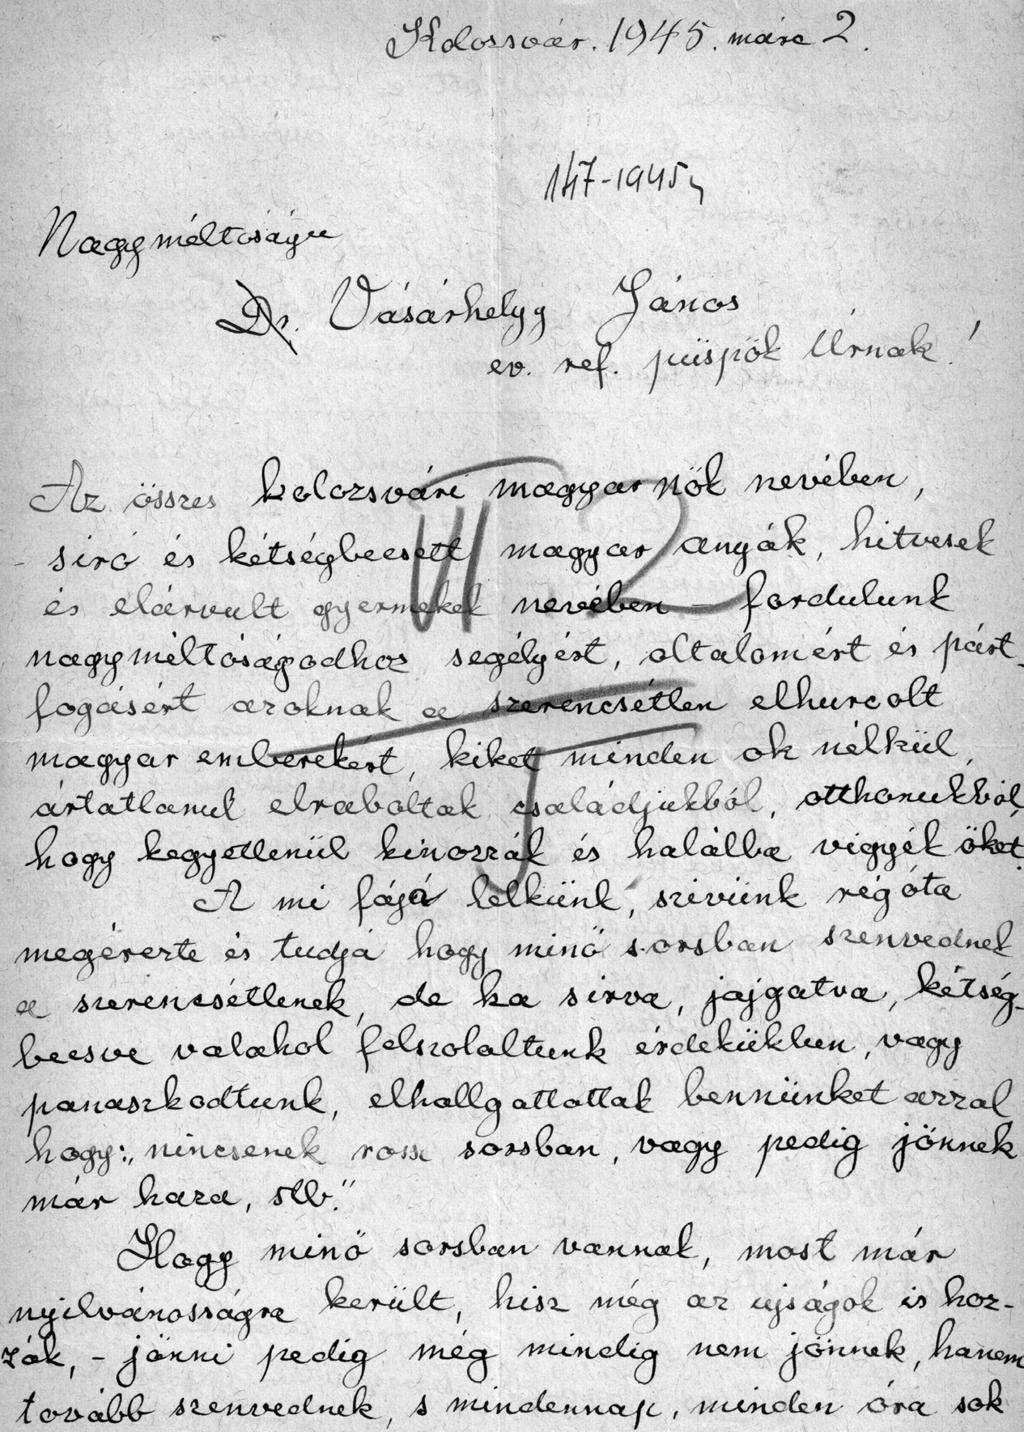 Kolossvár. 1945. márc 2.
147-1945,
Nagyméltóságu
Dr. Vásárhelyy János
ev. ref. püspök Úrnak!
Az összes kolozsvári magyar nők nevében,
- siró és kétségbeesett magyar anyák, hitvesek
és elárvult gyermekek nevében - fordulunk
nagyméltóságodhoz segélyért, oltalomért és párt-
fogásért azoknak a szerencsétlen elhurcolt
magyar emberekért, kiket minden ok nélkül,
ártatlanul elraboltak családjukból, otthonukból,
hogy kegyetlenül kinozzák és halálba vigyék őket.
A mi fájó lelkünk, szivünk régóta
megérezte és tudja hogy minő sorsban szenvednek
a szerencsétlenek, de ha sirva, jajgatva, kétség-
beesve valahol felszolaltunk érdekükben, vagy
panaszkodtunk, elhallgattattak bennünket azzal
hogy: „nincsenek rossz sorsban, vagy pedig jönnek
már haza, stb."
Hogy minő sorsban vannak, most már
nyilvánosságra került, hisz még az ujságok is hoz-
zák, - jönni pedig még mindig nem jönnek, hanem
tovább szenvednek, s mindennap, minden óra sok